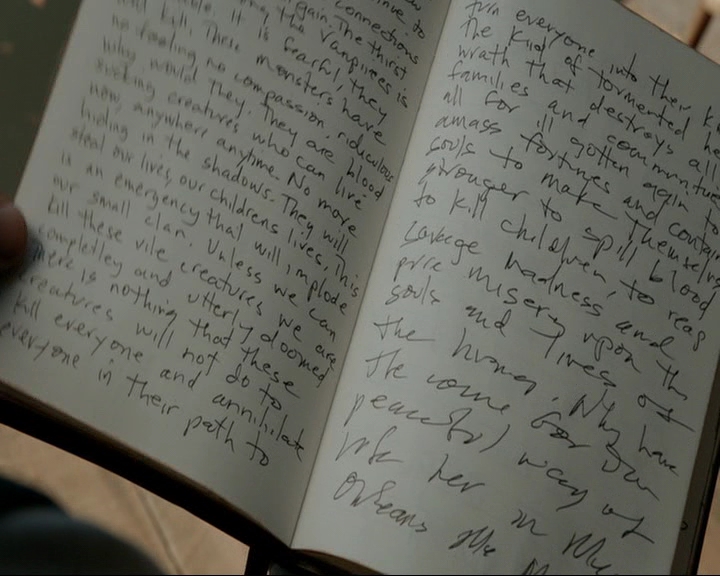 to
connections
again. The thirst
the Vampires is
It is fearful, they
and kill. These monsters have
no feeling no compassion, ridiculous
why would they. They are blood
sucking creatures who can live
now, anywhere anytime. No more
hiding in the shadows. They will
steal our lives, our childrens lives. This
is an emergency that will implode
our small clan. Unless we can
kill these vile creatures we are
completley and utterly doomed
There is nothing that these
creatures will not do to
kill everyone and annihilate
everyone in their path to
turn everyone into their
The kind of tormented
wrath that destroys all
families and
all for ill gotten again to
amass fortunes and
souls to make themselves
stronger to spill blood
to kill children, to
savage madness and
pure misery upon the
souls and lives of
the human. Why have
the come for our
peaceful way of
life her in the
Orleans